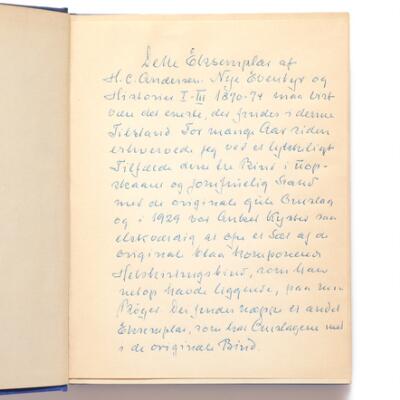 Dette Eksemplar af
H. C. Andersen. Nye Eventyr og
Historier I-III 1870-74 maa vist
være det eneste, der findes i denne
Tilstand. For mange Aar siden
erhvervede jeg ved et lykkeligt
Tilfælde denne tre Bind i uop-
skaaret og jomfruelig Stand
med de originale gule Omslag
og i 1929 var Anker Kyster saa
elskværdig at ofre et Sæt af de
originale blaa komponerede
Helshirtingsbind, som han
netop havde liggende, paa min
Bøger. Der findes næppe et andet
Eksemplar, som har Omslagene med
i de originale Bind.